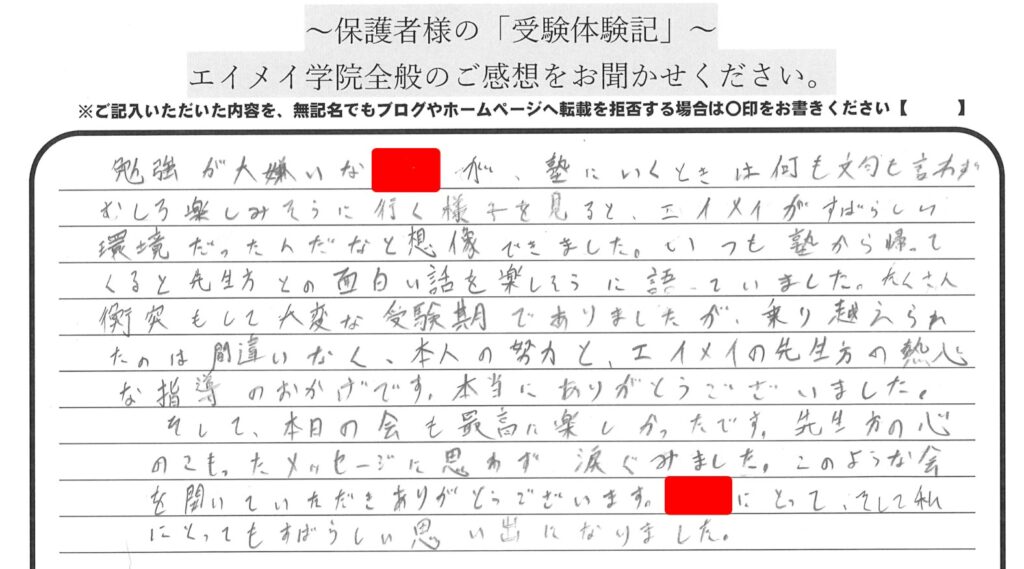 ～保護者様の「受験体験記」～
エイメイ学院全般のご感想をお聞かせください。
※ご記入いただいた内容を、無記名でもブログやホームページへ転載を拒否する場合は〇印をお書きください【　　　】
勉強が大嫌いな　　　が、塾にいくときは何も文句も言わず
むしろ楽しみそうに行く様子を見ると、エイメイがすばらしい
環境だったんだなと想像できました。いつも塾から帰って
くると先生方との面白い話を楽しそうに語っていました。たくさん
衝突もして大変な受験期でありましたが、乗り越えられ
たのは間違いなく、本人の努力と、エイメイの先生方の熱心
な指導のおかげです。本当にありがとうございました。
そして、本日の会も最高に楽しかったです。先生方の心
のこもったメッセージに思わず涙ぐみました。このような会
を開いていただきありがとうございます。　　　にとって、そして私
にとってもすばらしい思い出になりました。